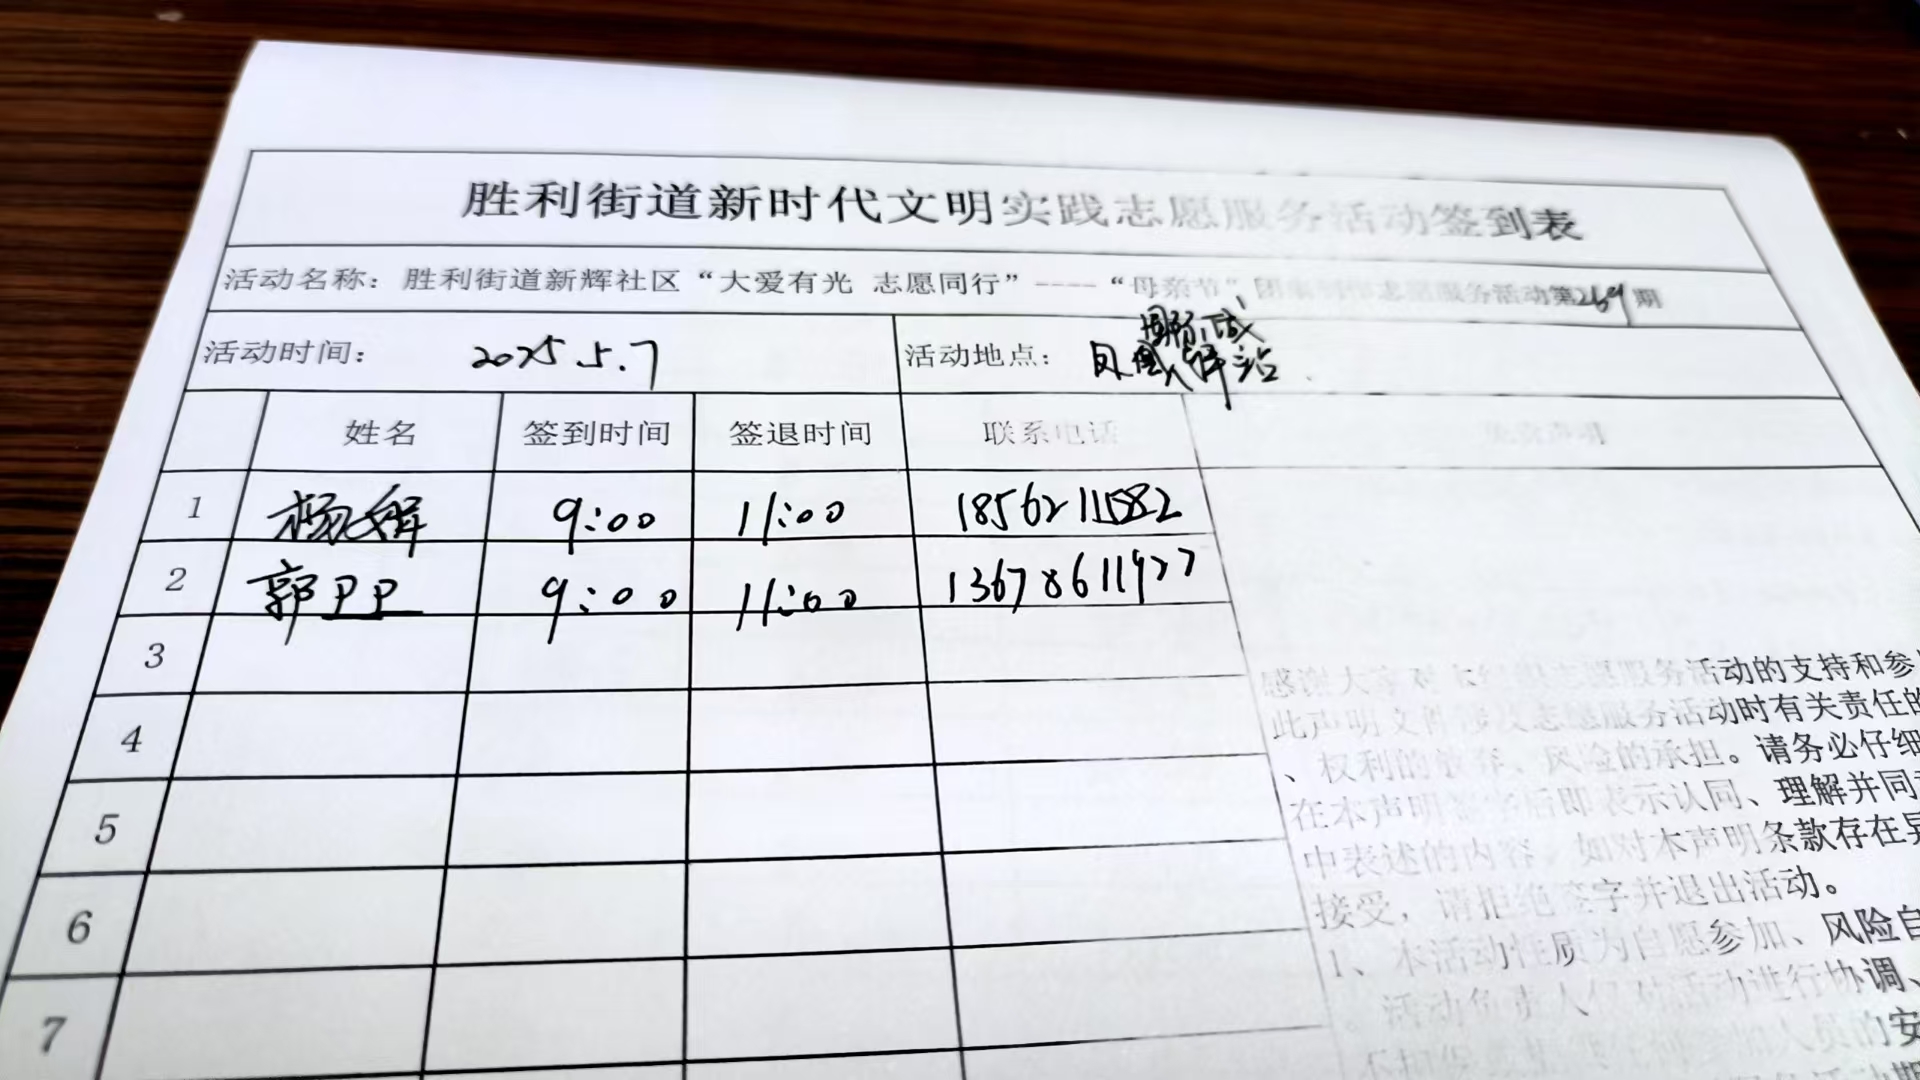 胜利街道新时代文明实践志愿服务活动签到表
活动名称：胜利街道新辉社区“大爱有光 志愿同行”----“母亲节”团扇制作志愿服务活动第269期
活动时间： 2025.5.7
活动地点： 凤凰国际城人驿站
姓名 签到时间 签退时间 联系电话
1 杨辉 9:00 11:00 18562111582
2 郭卫卫 9:00 11:00 13678611927
3
4
5
6
7
感谢大家对本次组织志愿服务活动的支持和参
此声明文件涉及志愿服务活动时有关责任的
、权利的放弃、风险的承担。请务必仔细
在本声明签字后即表示认同、理解并同
中表述的内容，如对本声明条款存在异
接受，请拒绝签字并退出活动。
1、本活动性质为自愿参加、风险自
。活动负责人仅对活动进行协调、
人员的安